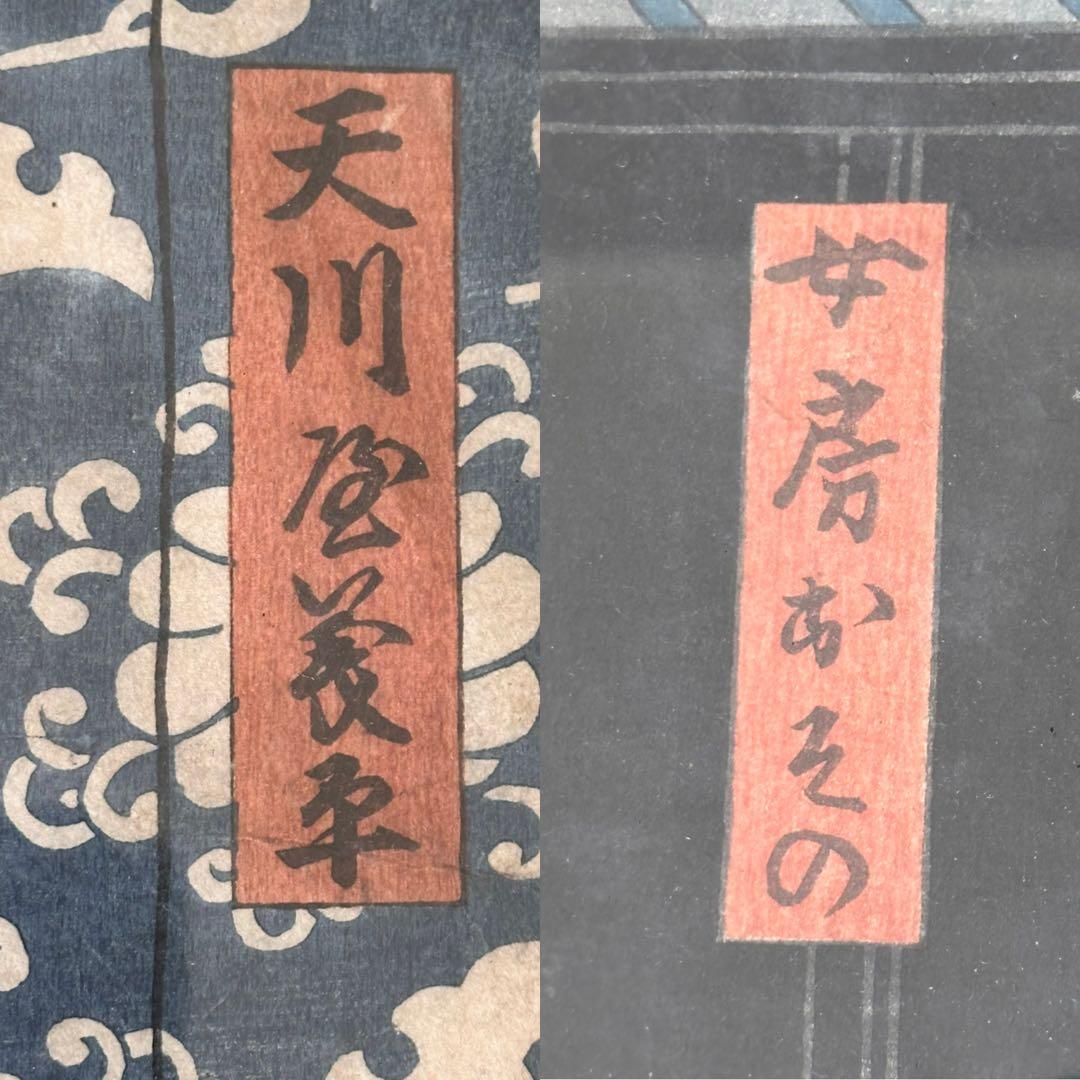 天川屋義平
女房おその